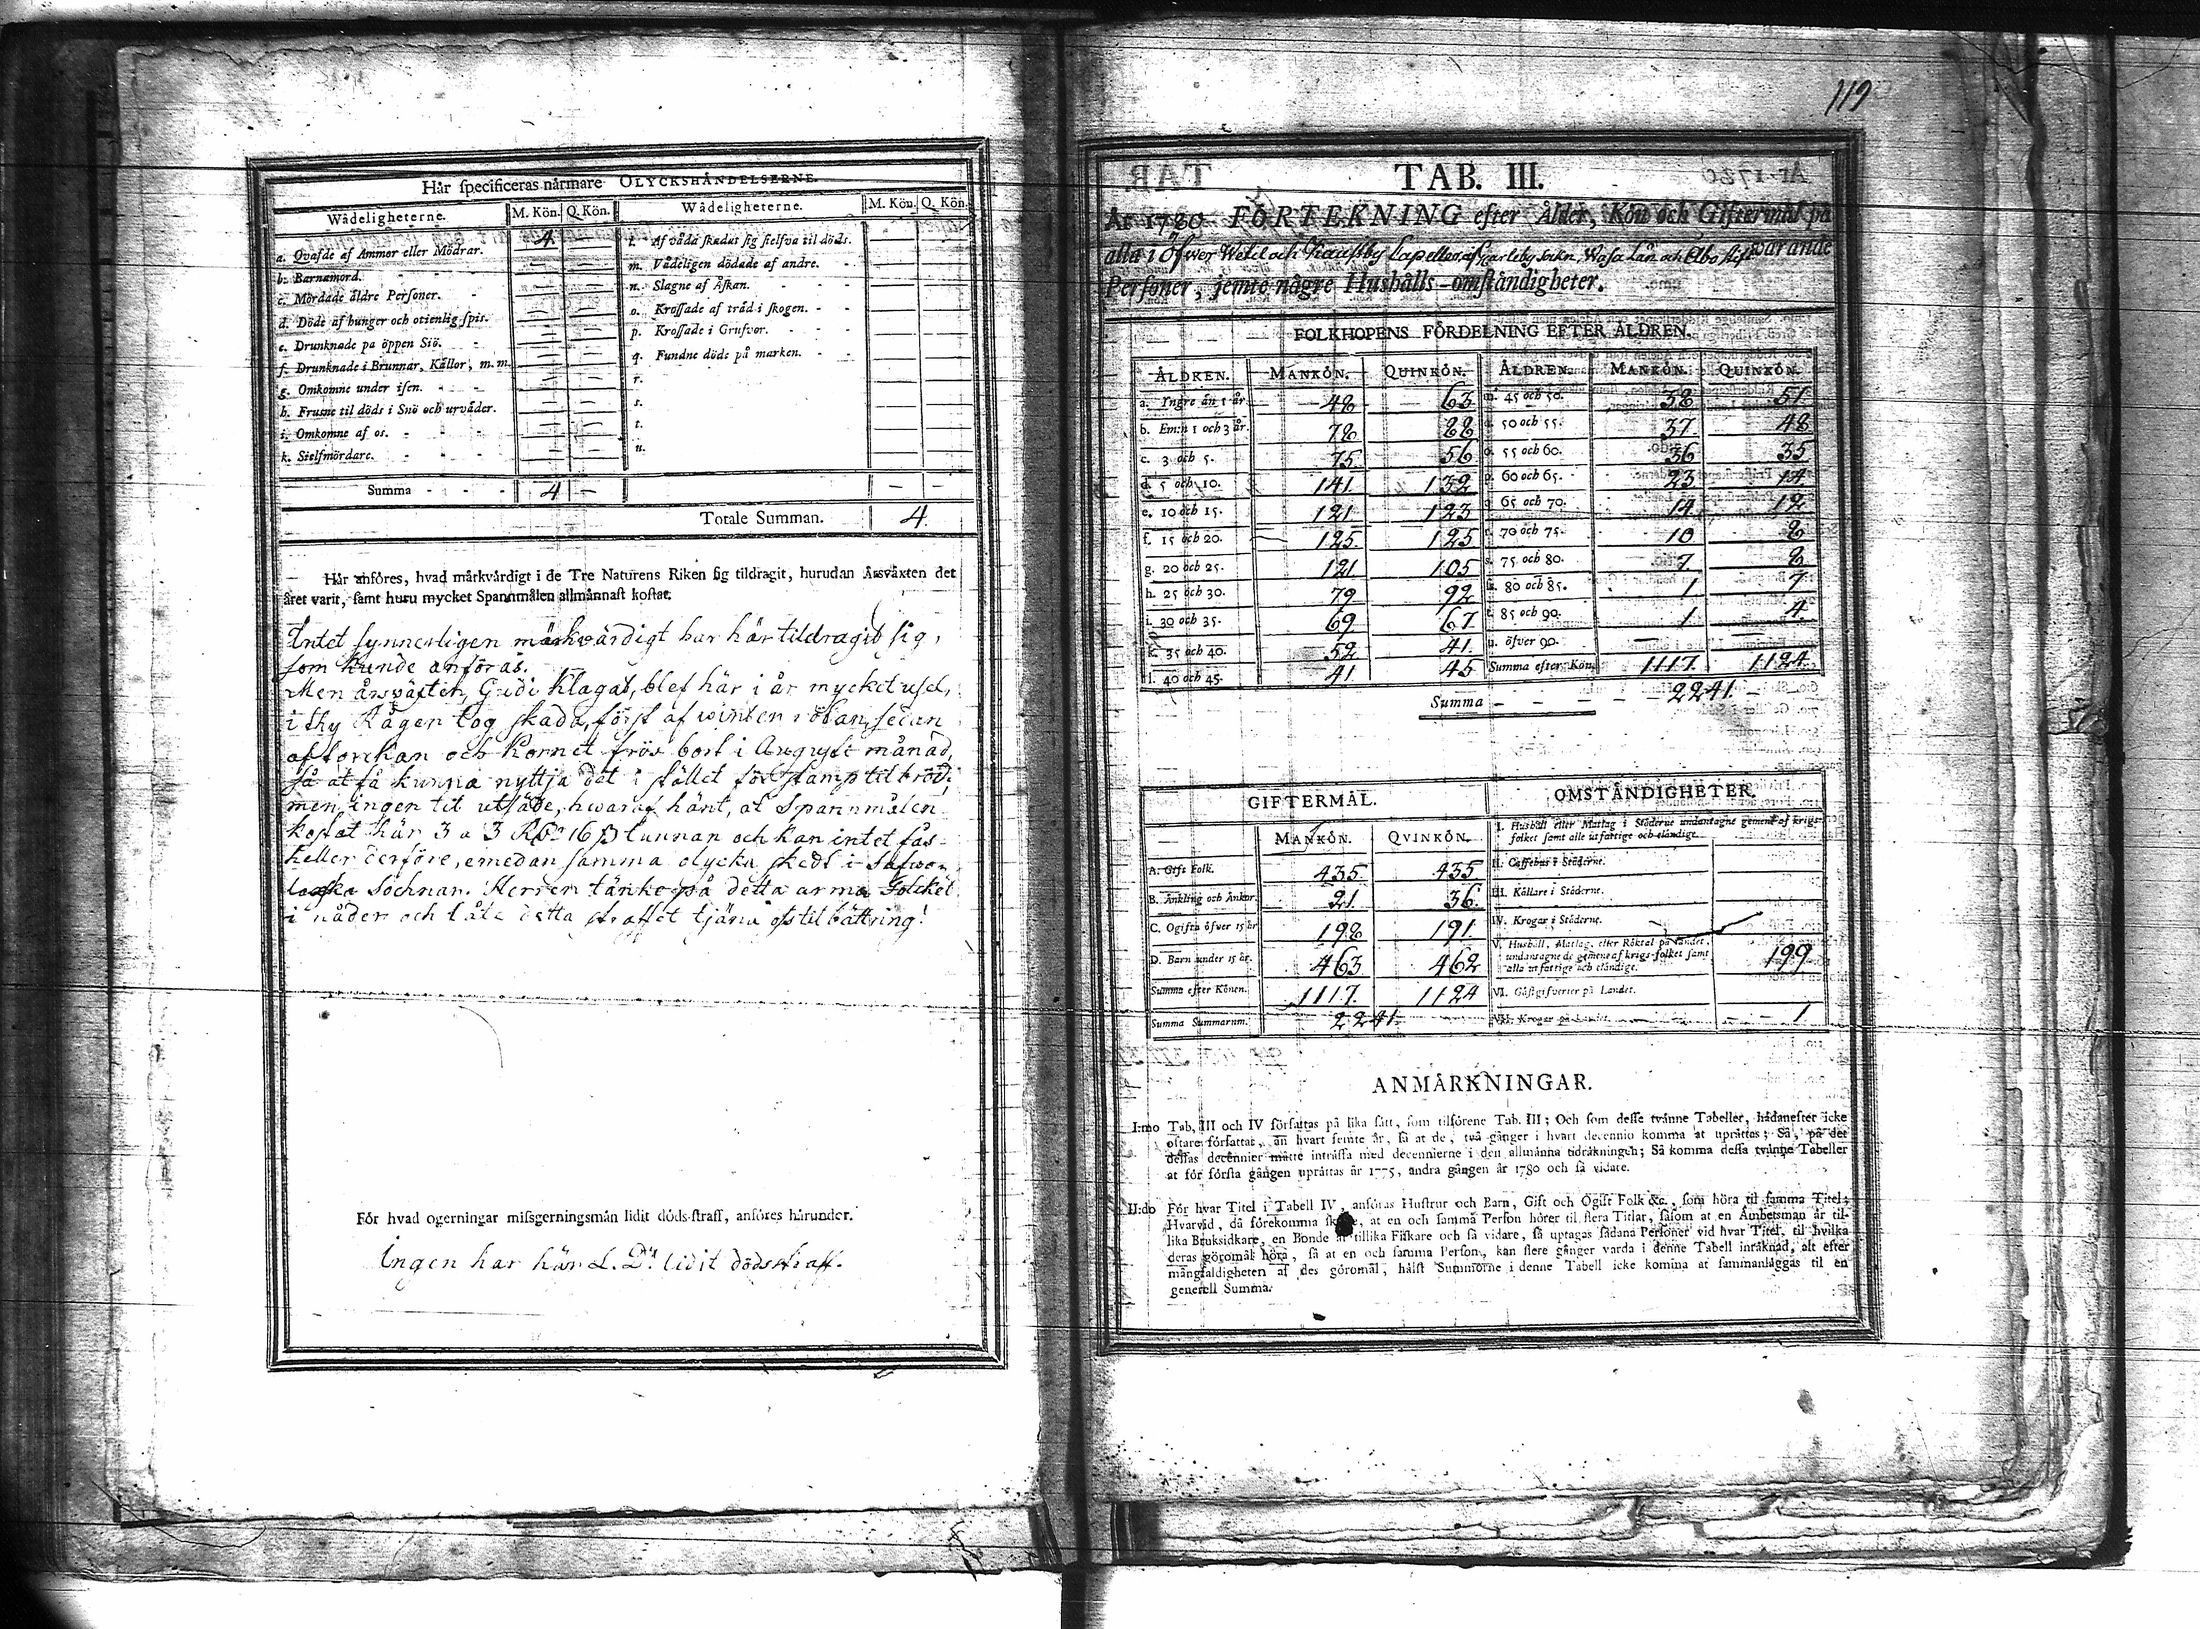 Hår specificeras nårmare OLYCKSHÅNDELSERNE.
Wådeligheterne. M. Kön. Q. Kön. Wådeligheterne. M. Kön. Q. Kön.
a. Qvafde af Ammor eller Mödrar. 4. — l. Af våda skadat sig sielfva til döds. — —
b. Barnamord. — — m. Vådeligen dödade af andre. — —
c. Mördade äldre Personer. — — n. Slagne af Åskan. — —
d. Döde af hunger och otienlig spis. — — o. Krossade af tråd i skogen. — —
e. Drunknade på öppen Siö. — — p. Krossade i Grufvor. — —
f. Drunknade i Brunnar, Källor, m. m. — — q. Fundne döde på marken. — —
g. Omkomne under isen. — — r.
h. Frusne til döds i Snö och urväder. — — s.
i. Omkomne af os. — — t.
k. Sielfmördare. — — u.
Summa - - - 4 — — —
Totale Summan. 4.
Hår anföres, hvad mårkvårdigt i de Tre Naturens Riken sig tildragit, hurudan Årsvåxten det
året varit, samt huru mycket Spannmålen allmånnast kostat.
Intet synnerligen märkvärdigt har här tildragit sig,
som kunde anföras.
Men årsväxten, Gudi klagat, blef här i år mycket usel,
i thy Rågen tog skada, först af winter rötan, sedan
af torckan och Kornet frös bort i Augusti månad,
så at få kunna nyttja dat i stället för stamp til bröd,
men ingen til utsäde, hwaraf händt, at Spannmålen
kostat här 3 a 3 Rdr 16 ß tunnan och kan intet fås
heller derföre, emedan samma olycka skedt i Safwo-
laxska Sochnar. Herren tänke på detta arma Folcket
i nåder och låte detta straffet tjäna oss til bättring!
För hvad ogerningar missgerningsmån lidit döds-straff, anföres hårunder.
Ingen har här L. D. lidit dödsstraff.
119
TAB. III.
År 1780 FÖRTEKNING efter Ålder, Kön och Giftermål på
alla i Öfwer Wetil och Kaustby Capeller, af Carleby Sokn, Wasa Län och Åbo stift varande
Personer, jemte någre Hushålls-omståndigheter.
FOLKHOPENS FÖRDELNING EFTER ÅLDREN.
ÅLDREN. MANKÖN. QUINKÖN. ÅLDREN. MANKÖN. QUINKÖN.
a. Yngre än 1 år 48 63 m. 45 och 50. 38 51
b. Em:n 1 och 3 år. 78 88 n. 50 och 55. 37 48
c. 3 och 5. 75 56 o. 55 och 60. 36 35
d. 5 och 10. 141 132 p. 60 och 65. 23 14
e. 10 och 15. 121 123 q. 65 och 70. 14 12
f. 15 och 20. 125 125 r. 70 och 75. 10 8
g. 20 och 25. 121 105 s. 75 och 80. 7 8
h. 25 och 30. 79 92 80 och 85. 1 7
i. 30 och 35. 69 67 t. 85 och 90. 1 4
k. 35 och 40. 52 41 u. öfver 90. — —
l. 40 och 45. 41 45 Summa efter Kön. 1117. 1124
Summa — — — — 2241. —
GIFTERMÅL. OMSTÅNDIGHETER.
MANKÖN. QVINKÖN.
A. Gift Folk. 435 435
B. Änkling och Änkor 21. 36.
C. Ogifta öfver 15 år 198 191
D. Barn under 15 år. 463 462
Summa efter Könen. 1117. 1124
Summa Summarum. 2241.
I. Hushåll eller Matlag i Städerne undantagne gemene af krigs-
folket samt alle utfattige och eländige.
II. Caffehus i Städerne.
III. Källare i Städerne.
IV. Krogar i Städerne.
V. Hushåll, Matlag, eller Röktal på Landet,
undantagne de gemene af krigs-folket samt
alla utfattige och eländige. 199
VI. Gästgifverier på Landet.
VII. Krogar på Landet. 1
ANMÅRKNINGAR.
I:mo Tab. III och IV författas på lika sått, som tilförene Tab. III; Och som desse tvånne Tabeller, hådanefter icke
oftare författat, ån hvart femte år, så at de, två gånger i hvart decennio komma at upråttas; Så, på det
dessas decennier måtte intråffa med decennierne i den allmånna tidråkningen; Så komma dessa tvånne Tabeller
at för första gången upråttas år 1775, andra gången år 1780 och så vidare.
II:do För hvar Titel i Tabell IV, anföras Hustrur och Barn, Gift och Ogift Folk &c., som höra til samma Titel;
Hvarvid, då förekomma skulle, at en och samma Person hörer til flera Titlar, såsom at en Åmbetsman år til-
lika Bruksidkare, en Bonde år tillika Fiskare och så vidare, så uptagas sådana Personer vid hvar Titel, til hvilka
deras göromål höra, så at en och samma Person, kan flere gånger varda i denne Tabell inråknad, alt efter
mångfaldigheten af des göromål, hålst Summorne i denne Tabell icke komma at sammanlåggas til en
generell Summa.